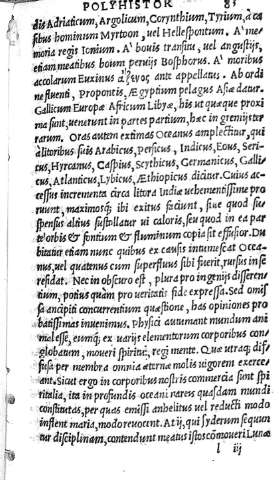 POLYHISTOR 85
dis Adriaticum, Argolicum, Corynthium, Tyrium, à ca
sibus hominum Myrtoon, vel Hellespontum. A' me
moria regis Ionium. A' bouis transitu, vel angustijs,
etiam meatibus boum peruijs Bosphorus. A' moribus
accolarum Euxinus ante appellatus. Ab ordi
ne fluenti, Propontis, Ægyptium pelagus Asiæ datur.
Gallicum Europæ Africum Libyæ, his ut quæque proxi
ma sunt, uenerunt in partes partium, hæc in gremijs ter
rarum. Oras autem extimas Oceanus amplectitur, qui
à litoribus suis Arabicus, Persicus, Indicus, Eous, Seri-
cus, Hyrcanus, Caspius, Scythicus, Germanicus, Galli-
cus, Atlanticus, Lybicus, Æthiopicus dicitur. Cuius ac-
cessus incrementa circa litora Indiæ uehementissime pro
ruunt, maximosq; ibi exitus faciunt, siue quod sus-
pensus altius sustollatur ui caloris, seu quod in ea par
te orbis & fontium & fluminum copia sit effusior. Du
bitatur etiam nunc quibus ex causis intumescat Ocea-
nus, uel quatenus cum superfluus sibi fuerit, rursus in se
residat. Nec in obscuro est, plura pro ingenijs disseren
tium, potius quàm pro ueritatis fide expressa. Sed omis
sa ancipiti concurrentium quæstione, has opiniones pro
batissimas inuenimus. Physici autumant mundum ani
mal esse, eumq; ex uarijs elementorum corporibus con-
globatum, moueri spiritu, regi mente. Quæ utraq; dif-
fusa per membra omnia æternæ molis uigorem exerce
ant. Sicut ergo in corporibus nostris commercia sunt spi
ritalia, ita in profundis oceani nares quasdam mundi
constitutas, per quas emissi anhelitus vel reducti modo
inflent maria, modo reuocent. At ij, qui syderum sequun
tur disciplinam, contendunt meatus istos cōmoueri Lunæ
l iij